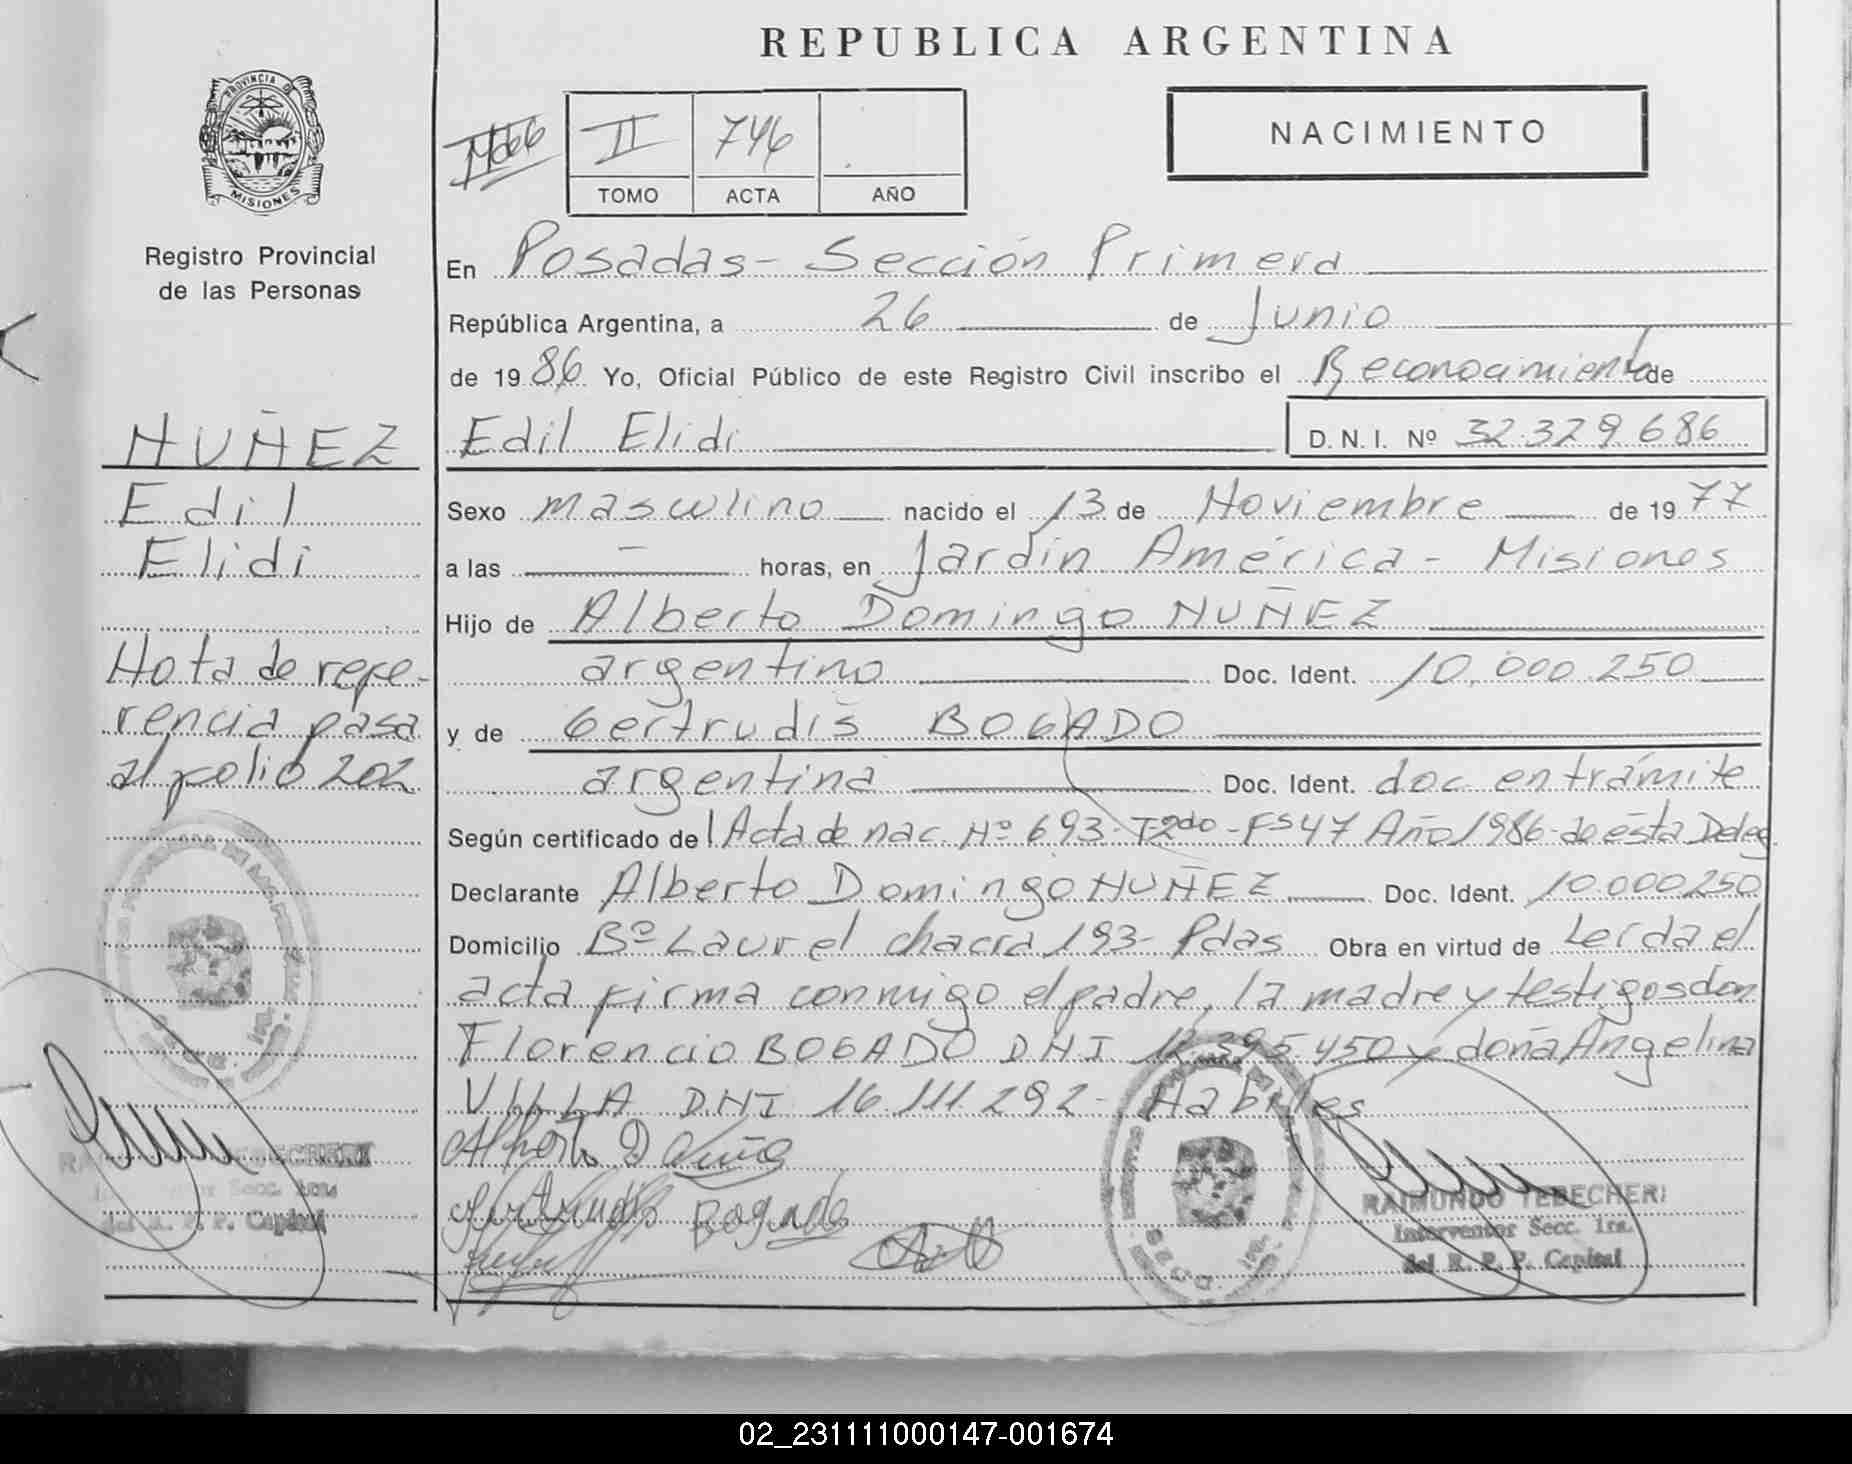 REPUBLICA ARGENTINA
PROVINCIA DE
MISIONES
Registro Provincial
de las Personas
II 746
TOMO ACTA AÑO
NACIMIENTO
En Posadas - Sección Primera
República Argentina, a 26 de Junio
de 1986 Yo, Oficial Público de este Registro Civil inscribo el Reconocimiento de
Edil Elidi D.N.I. Nº 32.329.686
NUÑEZ
Edil
Elidi
Nota de refe-
rencia pasa
al folio 202
Sexo masculino nacido el 13 de Noviembre de 1977
a las — horas, en Jardín América - Misiones
Hijo de Alberto Domingo NUÑEZ
argentino Doc. Ident. 10.000.250
y de Gertrudis BOGADO
argentina Doc. Ident. doc en trámite
Según certificado de Acta de nac. Nº 693 - T2do - Fs 47 Año 1986 - de ésta Deleg
Declarante Alberto Domingo NUÑEZ Doc. Ident. 10.000250
Domicilio Bº Laurel chacra 193 - Pdas Obra en virtud de Leída el
acta firma conmigo el padre, la madre y testigos don
Florencio BOGADO DNI 12.395.450 y doña Angelina
VILLA DNI 16.111.292 - Habiles
Alberto D Nuñe
Gertrudis Bogado
RAIMUNDO TEBECHERI
Interventor Secc. 1ra.
del R. P. P. Capital
TEBECHERI
Interventor Secc. 1ra.
del R. P. P. Capital
02_231111000147-001674